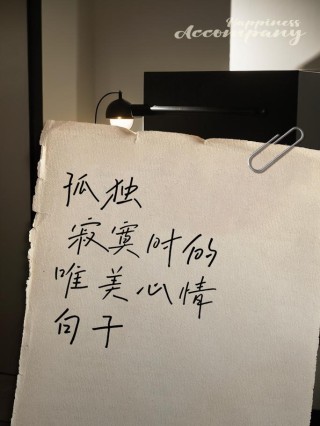 Happiness
Accompany
孤独
寂寞时的
唯美心情
句子